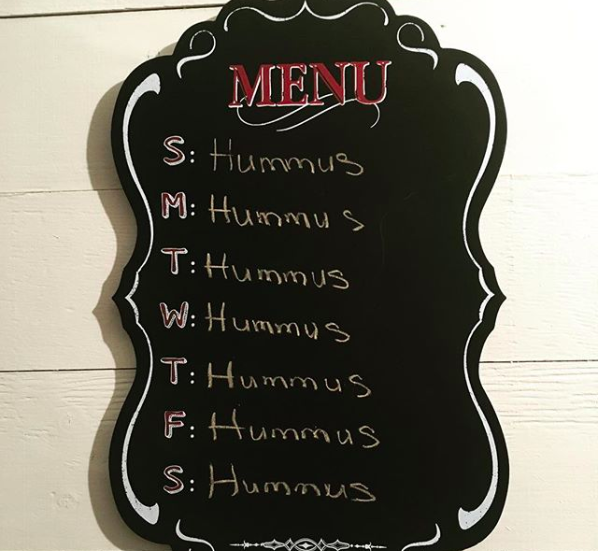 MENU
S: Hummus
M: Hummus
T: Hummus
W: Hummus
T: Hummus
F: Hummus
S: Hummus